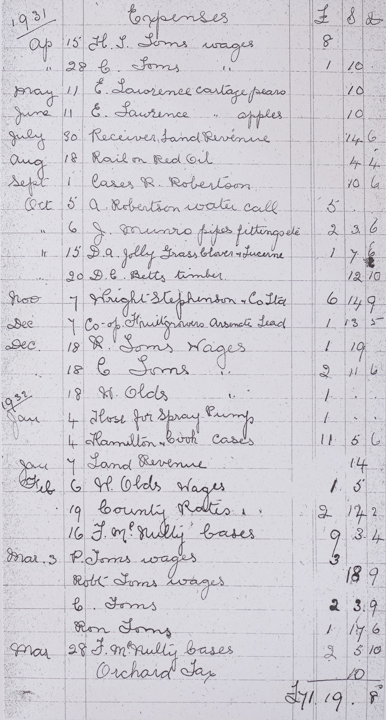 1931 Expenses £ S d
Ap 15 H. J. Toms wages 8
" 28 C. Toms " 1 10
May 11 E. Lawrence cartage pears 10
June 11 E. Lawrence " apples 10
July 30 Receiver Land Revenue 14 6
Aug 18 Rail on Red Oil 4 4
Sept 1 Cases R. Robertson 10 6
Oct 5 A. Robertson water call 5 .
" 6 J. Munro pipes fittings etc 2 3 6
" 15 D.A. Jolly Grass Clover & Lucerne 1 7 6
" 20 D.E. Betts timber 12 10
Nov 7 Wright Stephenson & Co Ltd 6 14 9
Dec 7 Co-op. Fruitgrowers Arsenate Lead 1 13 5
Dec. 18 R. Toms Wages 1 19
18 C Toms " 2 11 6
18 W. Olds " 1 . .
1932
Jan 4 Hose for Spray Pump 1 . .
4 Hamilton & Cook cases 11 5 6
Jan 7 Land Revenue 14
Feb 6 W. Olds Wages 1 5
19 County Rates " 2 17 2
16 F. McNulty cases 9 3 4
Mar. 3 P. Toms wages 3
Robt Toms wages 18 9
C. Toms 2 3 9
Ron Toms 1 17 6
Mar 28 F. McNulty cases 2 5 10
Orchard Tax 10
£71. 19. 8